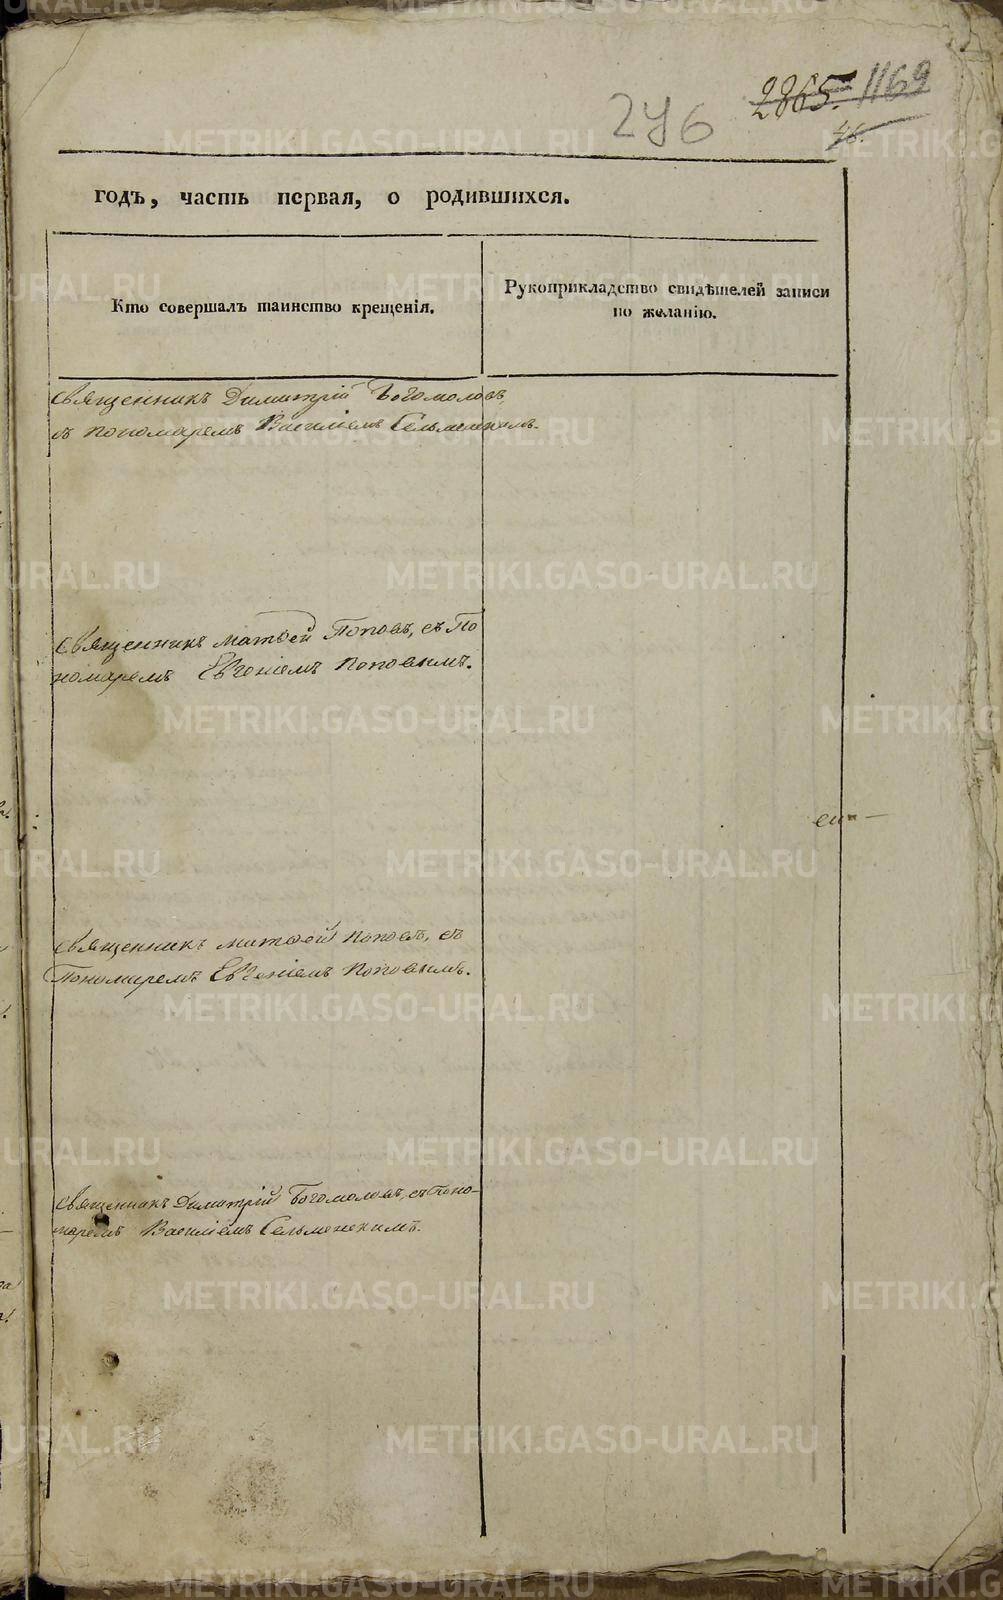 2865. 1169
246
46.
годъ, часть первая, о родившихся.
Кто совершалъ таинство крещенія.
Рукоприкладство свидѣтелей записи
по желанію.
Священникъ Димитрій Богомоловъ
съ пономаремъ Василіемъ Сельменскимъ.
Священникъ Матѳей Поповъ, съ По
номаремъ Евгеніемъ Поповымъ.
Священникъ Матѳей Поповъ, съ
Пономаремъ Евгеніемъ Поповымъ.
Священникъ Димитрій Богомоловъ, съ Поно-
маремъ Василіемъ Сельменскимъ.
METRIKI.GASO-URAL.RU